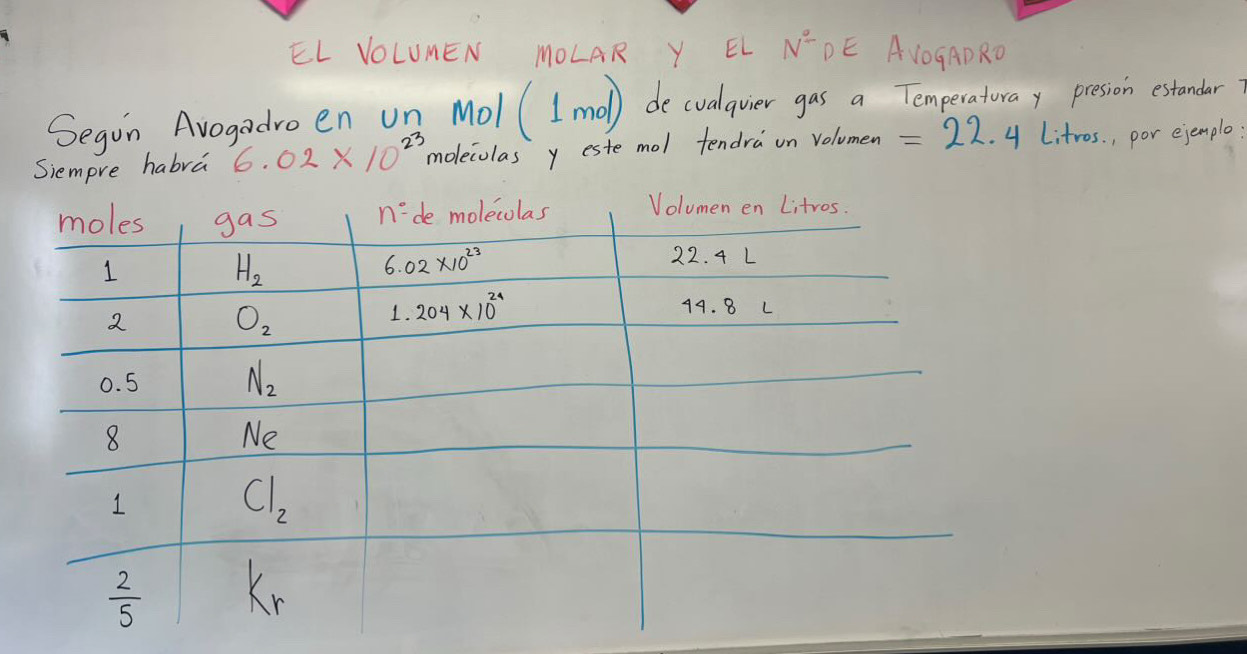 EL VOLUMEN MOLAR Y EL Nº DE AVOGADRO
Según Avogadro en un Mol (1 mol) de cualquier gas a Temperatura y presión estandar
Siempre habrá 6.02 X 10²³ moléculas y este mol tendrá un volumen = 22.4 Litros., por ejemplo:
moles gas nº de moléculas Volumen en Litros.
1 H₂ 6.02 X10²³ 22.4 L
2 O₂ 1.204 X10²⁴ 44.8 L
0.5 N₂
8 Ne
1 Cl₂
2/5 Kr